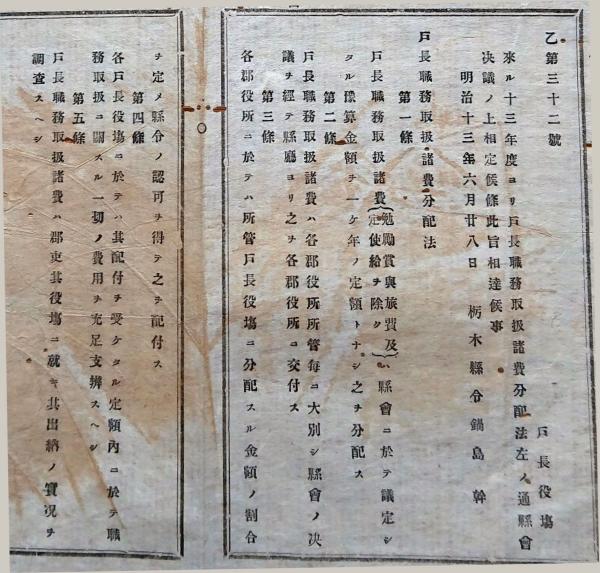 乙第三十二號
戸長役塲
來ル十三年度ヨリ戸長職務取扱諸費分配法左ノ通縣會
決議ノ上相定候條此旨相達候事
明治十三年六月廿八日　栃木縣令鍋島幹
戸長職務取扱諸費分配法
第一條
戸長職務取扱諸費(勉勵賞與旅費及定使給ヲ除ク)ハ縣會ニ於テ議定シ
タル豫算金額ヲ一ケ年ノ定額トナシ之ヲ分配ス
第二條
戸長職務取扱諸費ハ各郡役所所管毎ニ大別シ縣會ノ决
議ヲ經テ縣廳ヨリ之ヲ各郡役所ニ交付ス
第三條
各郡役所ニ於テハ所管戸長役塲ニ分配スル金額ノ割合
ヲ定メ縣令ノ認可ヲ得テ之ヲ配付ス
第四條
各戸長役塲ニ於テハ其配付ヲ受ケタル定額內ニ於テ職
務取扱ニ關スル一切ノ費用ヲ充足支辨スヘシ
第五條
戸長職務取扱諸費ハ郡吏其役塲ニ就キ其出納ノ實况ヲ
調査スヘシ